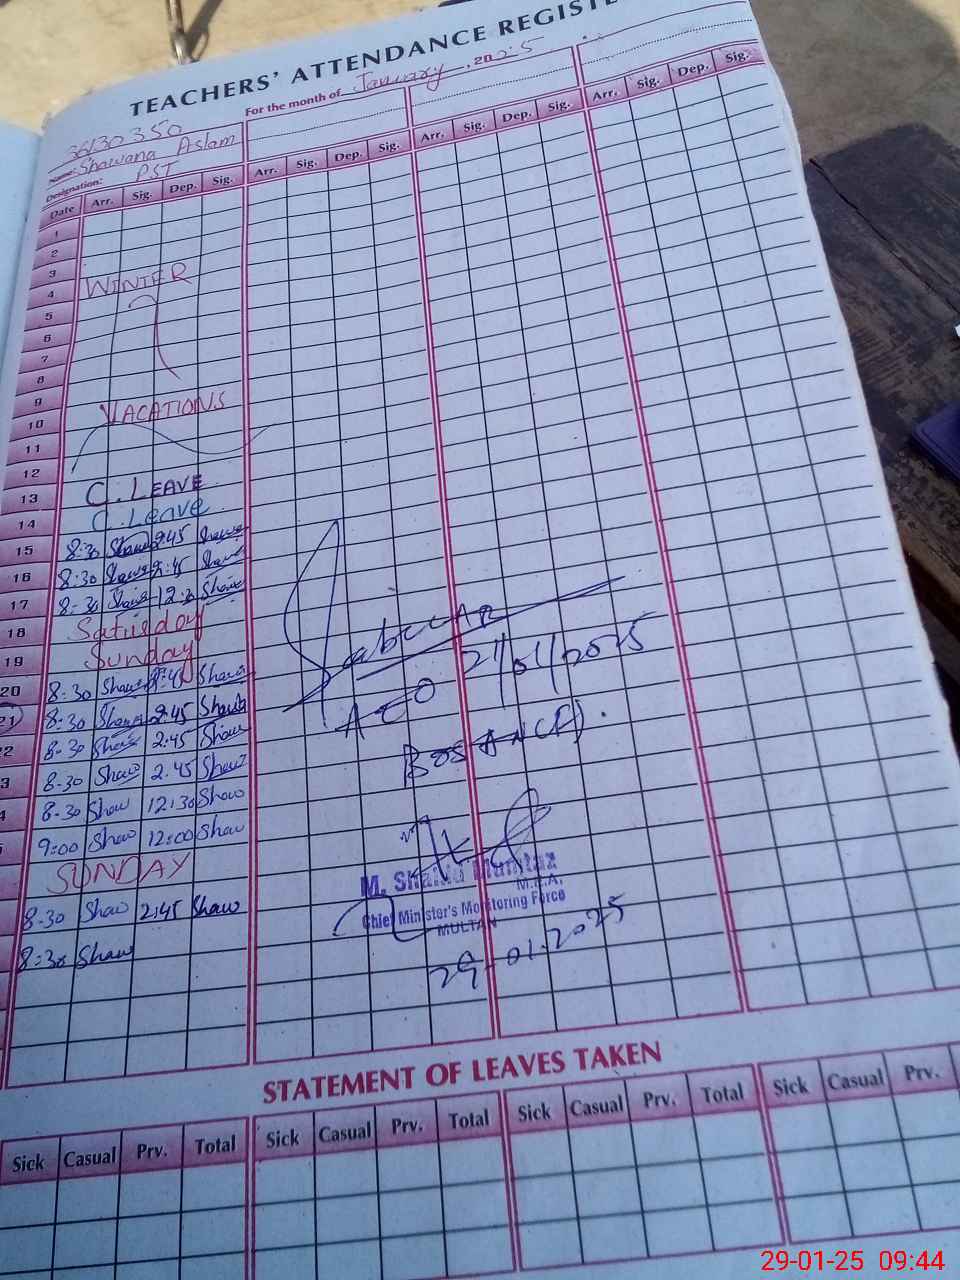 TEACHERS' ATTENDANCE REGISTE
For the month of January, 2025
36130350
Name: Shawana Aslam
Designation: PST
Date Arr. Sig. Dep. Sig. Arr. Sig. Dep. Sig. Arr. Sig. Dep. Sig. Arr. Sig. Dep. Sig.
1
2
3
WINTER
4
5
6
7
8
9
VACATIONS
10
11
12
13 C. LEAVE
14 C. Leave
15 8:30 2:45
16 8:30 2:45
17 8:30
18 Saturday
19 Sunday
20 8:30
21 8:30 2:45
22 8:30 Shaw 2:45 Shaw
3 8-30 Shaw 2.45 Shaw
4 8-30 Shaw 12:30 Shaw
9:00 Shaw 12:00 Shaw
SUNDAY
8-30 Shaw 2:45 Shaw
8:30 Shaw
AEO
BOSAN(F).
M. Shahid Mumtaz
M.E.A.
Chief Minister's Monitoring Force
MULTAN
29-01-2025
STATEMENT OF LEAVES TAKEN
Sick Casual Prv. Total Sick Casual Prv. Total Sick Casual Prv. Total Sick Casual Prv.
29-01-25 09:44